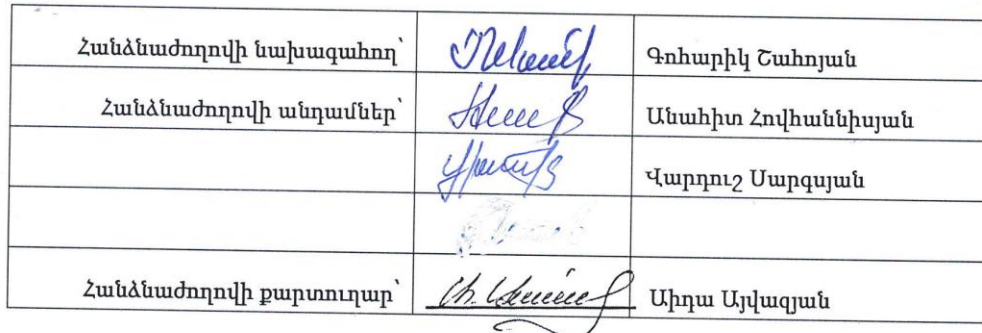 Հանձնաժողովի նախագահող՝ Գոհարիկ Շահոյան
Հանձնաժողովի անդամներ՝ Անահիտ Հովհաննիսյան
Վարդուշ Սարգսյան
Հանձնաժողովի քարտուղար՝ Աիդա Այվազյան